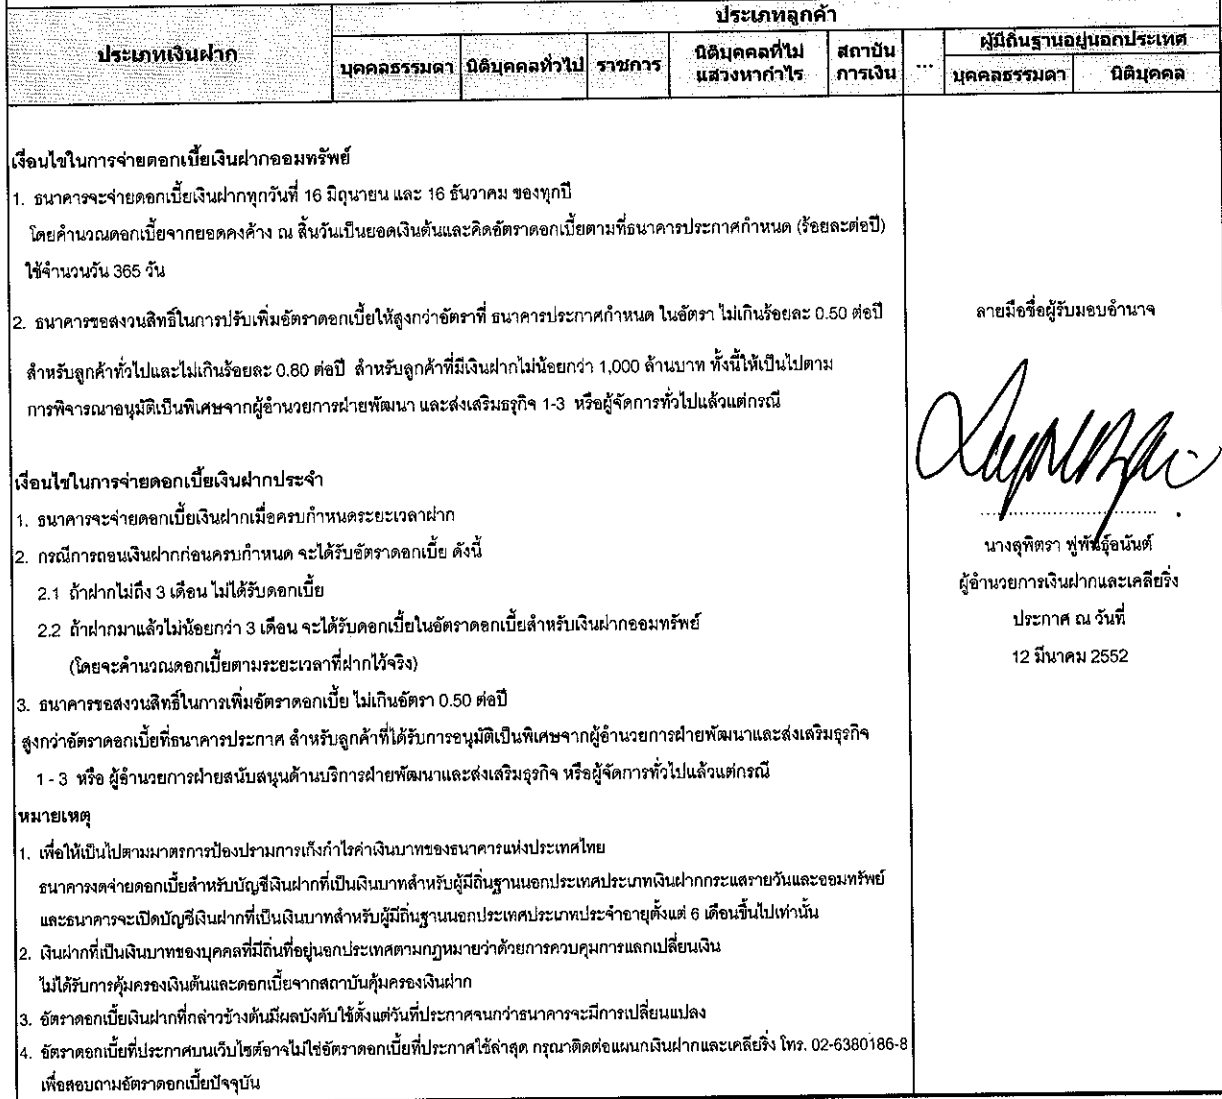 ประเภทลูกค้า
ประเภทเงินฝาก
บุคคลธรรมดา นิติบุคคลทั่วไป ราชการ นิติบุคคลที่ไม่แสวงหากำไร สถาบันการเงิน ... ผู้มีถิ่นฐานอยู่นอกประเทศ
บุคคลธรรมดา นิติบุคคล
เงื่อนไขในการจ่ายดอกเบี้ยเงินฝากออมทรัพย์
1. ธนาคารจะจ่ายดอกเบี้ยเงินฝากทุกวันที่ 16 มิถุนายน และ 16 ธันวาคม ของทุกปี
โดยคำนวณดอกเบี้ยจากยอดคงค้าง ณ สิ้นวันเป็นยอดเงินต้นและคิดอัตราดอกเบี้ยตามที่ธนาคารประกาศกำหนด (ร้อยละต่อปี)
ใช้จำนวนวัน 365 วัน
2. ธนาคารขอสงวนสิทธิ์ในการปรับเพิ่มอัตราดอกเบี้ยให้สูงกว่าอัตราที่ ธนาคารประกาศกำหนด ในอัตรา ไม่เกินร้อยละ 0.50 ต่อปี
สำหรับลูกค้าทั่วไปและไม่เกินร้อยละ 0.80 ต่อปี สำหรับลูกค้าที่มีเงินฝากไม่น้อยกว่า 1,000 ล้านบาท ทั้งนี้ให้เป็นไปตาม
การพิจารณาอนุมัติเป็นพิเศษจากผู้อำนวยการฝ่ายพัฒนา และส่งเสริมธุรกิจ 1-3 หรือผู้จัดการทั่วไปแล้วแต่กรณี
เงื่อนไขในการจ่ายดอกเบี้ยเงินฝากประจำ
1. ธนาคารจะจ่ายดอกเบี้ยเงินฝากเมื่อครบกำหนดระยะเวลาฝาก
2. กรณีการถอนเงินฝากก่อนครบกำหนด จะได้รับอัตราดอกเบี้ย ดังนี้
2.1 ถ้าฝากไม่ถึง 3 เดือน ไม่ได้รับดอกเบี้ย
2.2 ถ้าฝากมาแล้วไม่น้อยกว่า 3 เดือน จะได้รับดอกเบี้ยในอัตราดอกเบี้ยสำหรับเงินฝากออมทรัพย์
(โดยจะคำนวณดอกเบี้ยตามระยะเวลาที่ฝากไว้จริง)
3. ธนาคารขอสงวนสิทธิ์ในการเพิ่มอัตราดอกเบี้ย ไม่เกินอัตรา 0.50 ต่อปี
สูงกว่าอัตราดอกเบี้ยที่ธนาคารประกาศ สำหรับลูกค้าที่ได้รับการอนุมัติเป็นพิเศษจากผู้อำนวยการฝ่ายพัฒนาและส่งเสริมธุรกิจ
1 - 3 หรือ ผู้อำนวยการฝ่ายสนับสนุนด้านบริการฝ่ายพัฒนาและส่งเสริมธุรกิจ หรือผู้จัดการทั่วไปแล้วแต่กรณี
หมายเหตุ
1. เพื่อให้เป็นไปตามมาตรการป้องปรามการเก็งกำไรค่าเงินบาทของธนาคารแห่งประเทศไทย
ธนาคารงดจ่ายดอกเบี้ยสำหรับบัญชีเงินฝากที่เป็นเงินบาทสำหรับผู้มีถิ่นฐานนอกประเทศประเภทเงินฝากกระแสรายวันและออมทรัพย์
และธนาคารจะเปิดบัญชีเงินฝากที่เป็นเงินบาทสำหรับผู้มีถิ่นฐานนอกประเทศประเภทประจำอายุตั้งแต่ 6 เดือนขึ้นไปเท่านั้น
2. เงินฝากที่เป็นเงินบาทของบุคคลที่มีถิ่นที่อยู่นอกประเทศตามกฎหมายว่าด้วยการควบคุมการแลกเปลี่ยนเงิน
ไม่ได้รับการคุ้มครองเงินต้นและดอกเบี้ยจากสถาบันคุ้มครองเงินฝาก
3. อัตราดอกเบี้ยเงินฝากที่กล่าวข้างต้นมีผลบังคับใช้ตั้งแต่วันที่ประกาศจนกว่าธนาคารจะมีการเปลี่ยนแปลง
4. อัตราดอกเบี้ยที่ประกาศบนเว็บไซต์อาจไม่ใช่อัตราดอกเบี้ยที่ประกาศใช้ล่าสุด กรุณาติดต่อแผนกเงินฝากและเคลียริ่ง โทร. 02-6380186-8
เพื่อสอบถามอัตราดอกเบี้ยปัจจุบัน
ลายมือชื่อผู้รับมอบอำนาจ
นางสุพิตรา ฟูพันธุ์อนันต์
ผู้อำนวยการเงินฝากและเคลียริ่ง
ประกาศ ณ วันที่
12 มีนาคม 2552